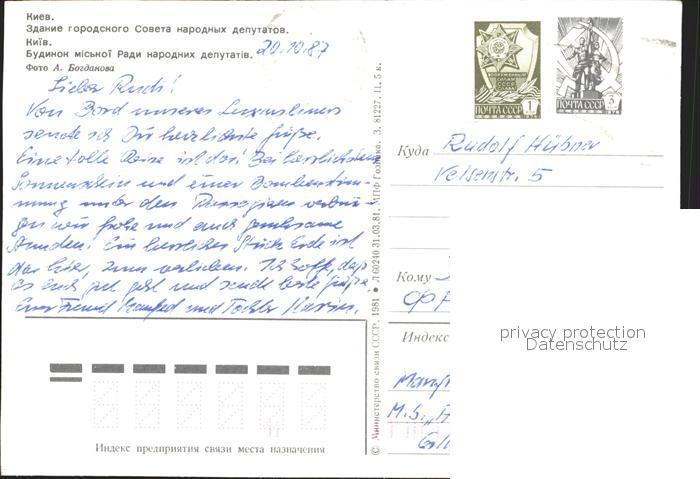 Киев.
Здание городского Совета народных депутатов.
Київ.
Будинок міської Ради народних депутатів.
20.10.87
Фото А. Богданова
Lieber Rudi!
Von Bord unseres Luxusliners
sende ich Dir herzlichste Grüße.
Eine tolle Reise ist das! Bei herrlichstem
Sonnenschein und einer Bombenstim-
mung unter den Passagieren verbrin-
gen wir frohe und auch gemeinsame
Stunden. Ein herrliches Stück Erde ist
das hier, zum verlieben. Ich hoffe, daß
es Euch gut geht und sende beste Grüße
Euer Freund Manfred und Tochter Karin.
ВООРУЖЕННЫЕ СИЛЫ СССР
ПОЧТА СССР 1
ПОЧТА СССР 3
Куда Rudolf Hübner
Velsenstr. 5
Кому
ФР
Индекс
Manf
M.S. „
Индекс предприятия связи места назначения
© Министерство связи СССР, 1981 • Л60240 31.03.81. МПФ Гознака. З. 81227. Ц. 5 к.
privacy protection
Datenschutz